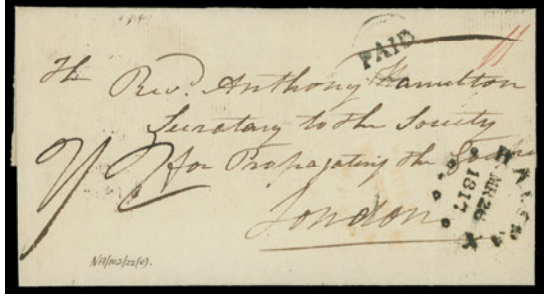 PAID
The Revd. Anthony Hamilton
Secretary to the Society
for Propagating the Gospel
London
HALIFAX
MR 26
1817